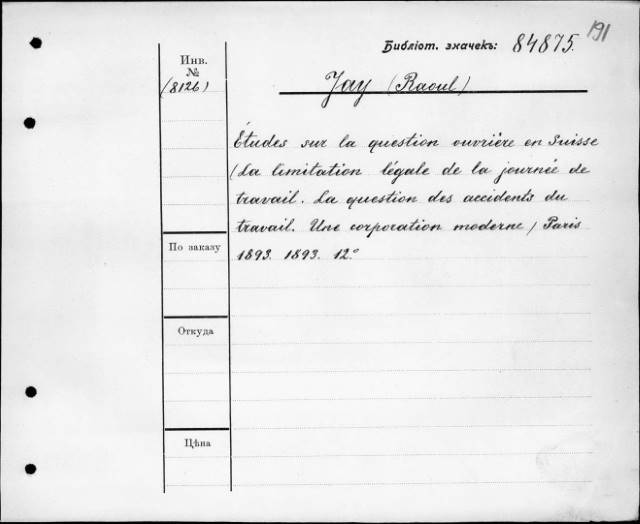 191
Библіот. значекъ: 84875.
Инв.
№
(8126)
Jay (Raoul)
Études sur la question ouvrière en Suisse
(La limitation légale de la journée de
travail. La question des accidents du
travail. Une corporation moderne) Paris
1893. 1893. 12°
По заказу
Откуда
Цѣна